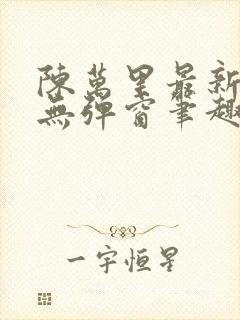 陳萬里最新
無彈窗筆趣
一宇恒星